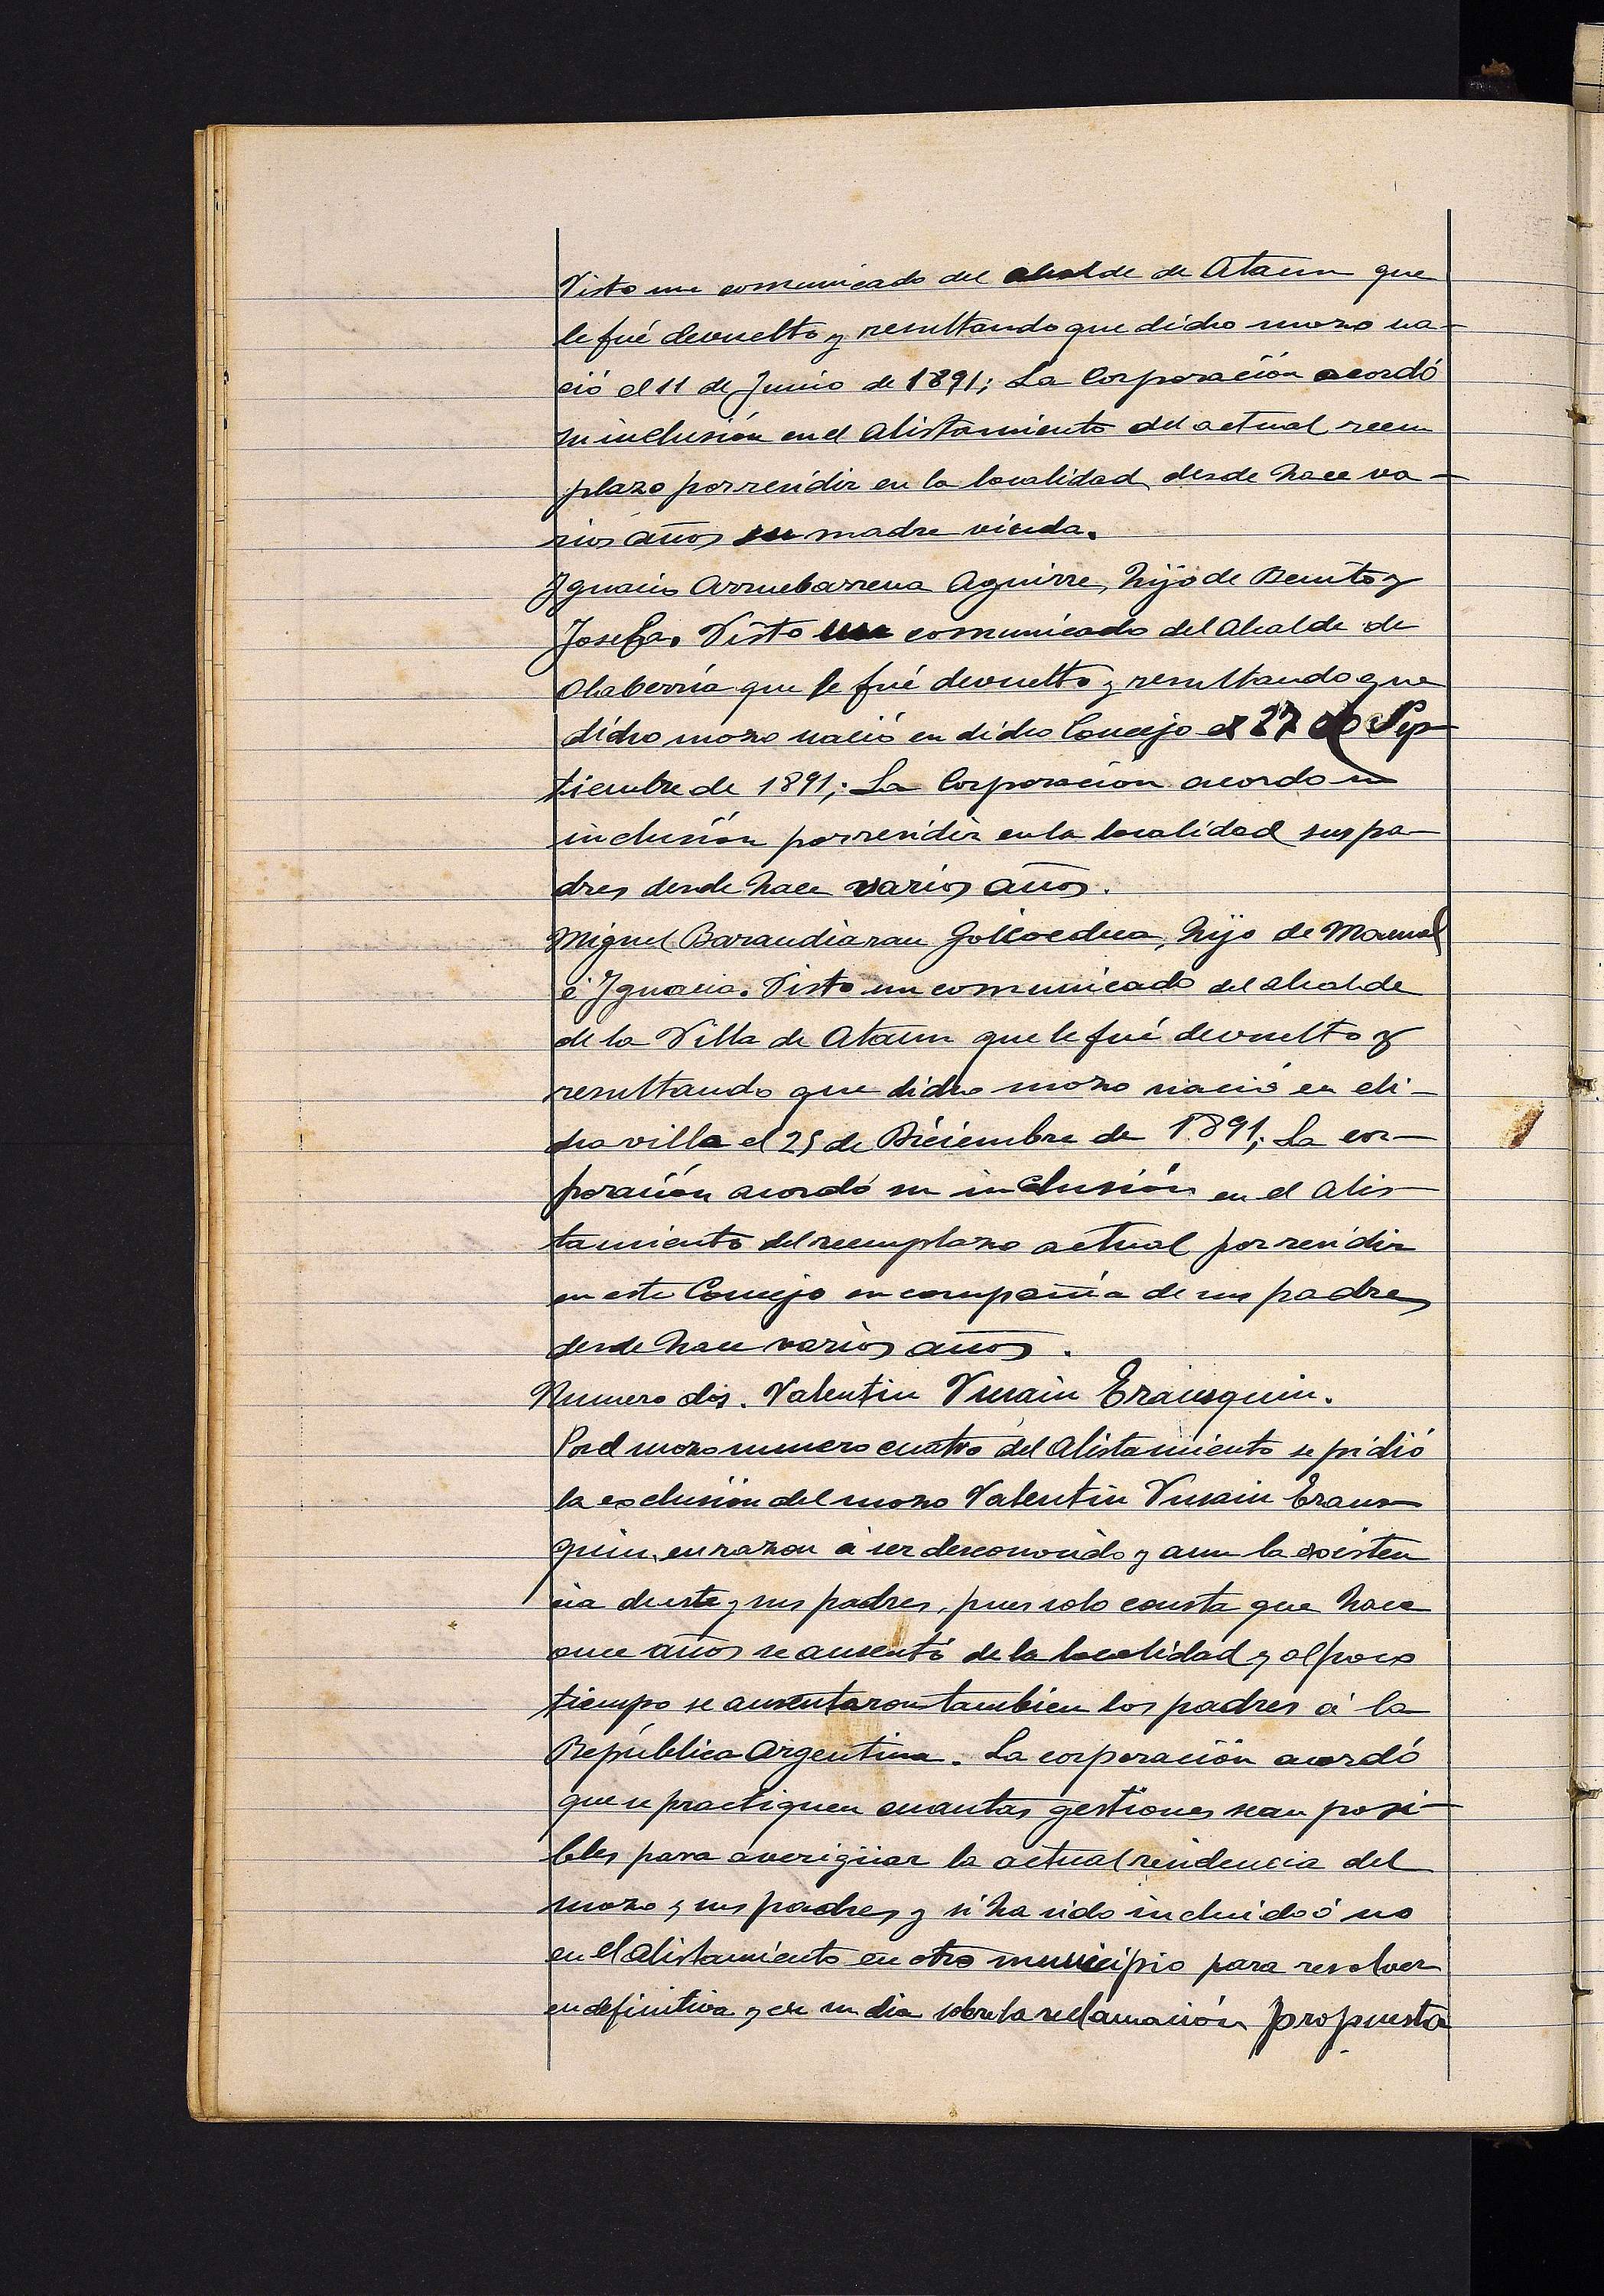 Visto un comunicado del alcalde de Ataun que
le fué devuelto y resultando que dicho mozo na-
ció el 11 de Junio de 1891; La Corporación acordó
su inclusión en el Alistamiento del actual reem
plazo por residir en la localidad desde hace va-
rios años su madre viuda.
Ignacio Arruebarrena Aguirre, hijo de Benito y
Josefa. Visto un comunicado del Alcalde de
Olaberría que le fué devuelto y resultando que
dicho mozo nació en dicho Concejo el 27 de Sep-
tiembre de 1891; La Corporación acordo su
inclusión por residir en la localidad sus pa-
dres desde hace varios años.
Miguel Barandiaran Goicoechea, hijo de Manuel
é Ignacia. Visto un comunicado del alcalde
de la Villa de Ataun que le fué devuelto y
resultando que dicho mozo nació en di-
cha villa el 25 de Diciembre de 1891; La cor-
poración acordó su inclusión en el alis-
tamiento del reemplazo actual por residir
en este Concejo en compañia de sus padres
desde hace varios años.
Numero dos. Valentin Erausquin.
Por el mozo numero cuatro del Alistamiento se pidió
la exclusión del mozo Valentin Eraus-
quin, en razon á ser desconocido y aun la existen
cia de este y sus padres, pues solo consta que hace
once años se ausentó de la localidad y al poco
tiempo se ausentaron tambien los padres á la
República Argentina. La corporación acordó
que se practiquen cuantas gestiones sean posi-
bles para averigüar la actual residencia del
mozo y sus padres y si ha sido incluido ó no
en el alistamiento en otro municipio para resolver
en definitiva y en su dia sobre la reclamación propuesta